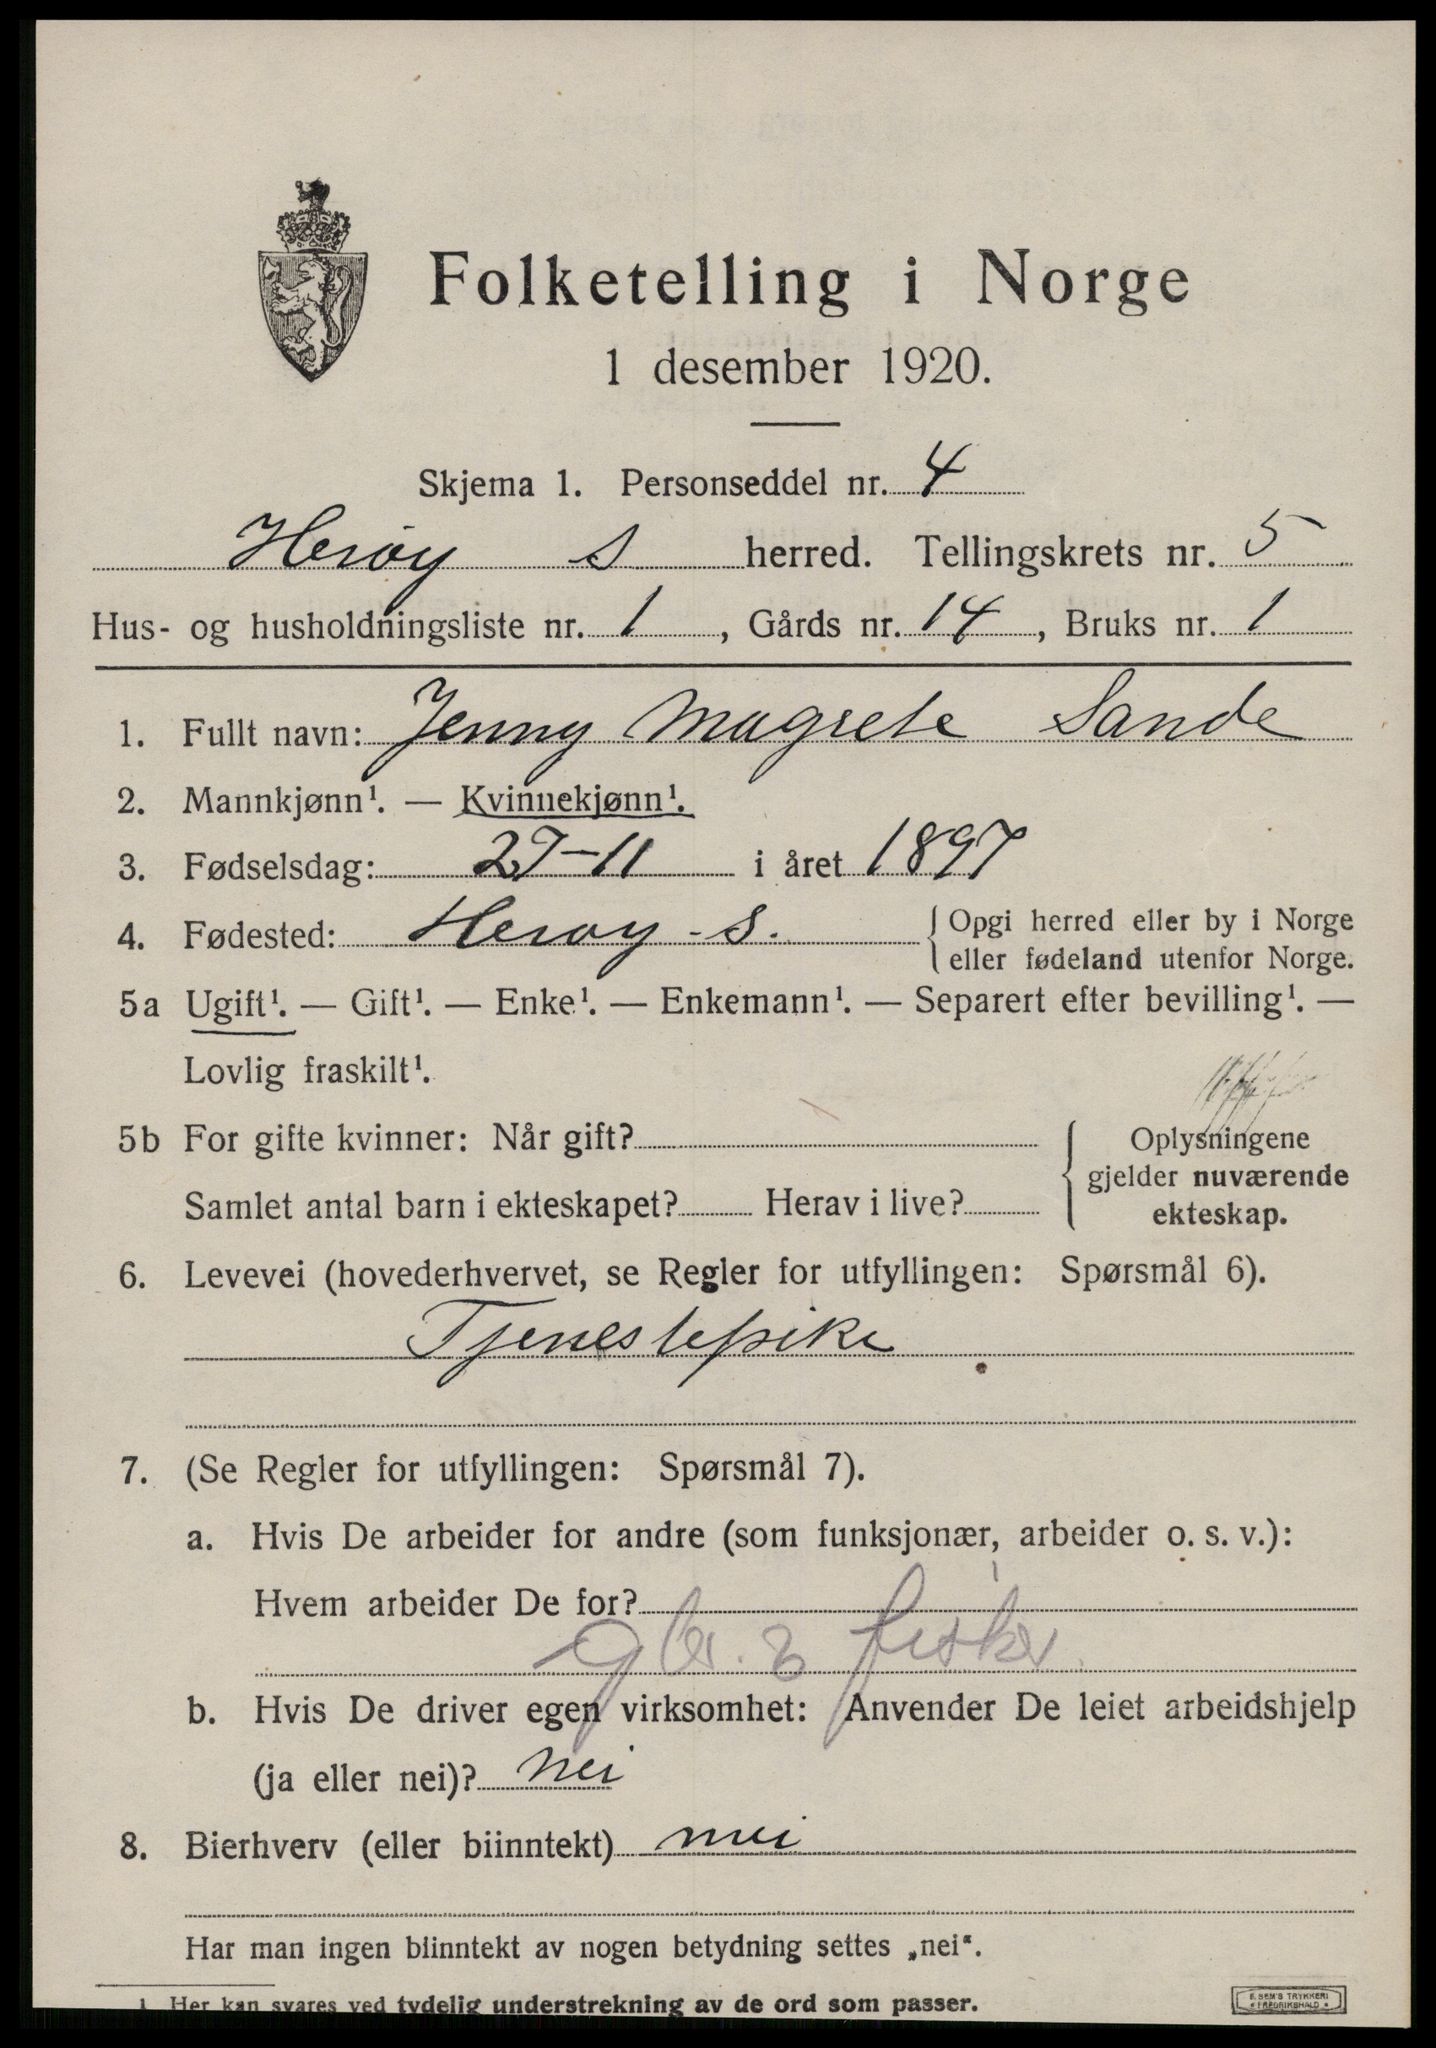 Folketelling i Norge
1 desember 1920.
Skjema 1. Personseddel nr. 4
Herøy S herred. Tellingskrets nr. 5
Hus- og husholdningsliste nr. 1, Gårds nr. 14, Bruks nr. 1
1. Fullt navn: Jenny Magrete Sande
2. Mannkjønn¹. — Kvinnekjønn¹.
3. Fødselsdag: 27-11 i året 1897
4. Fødested: Herøy S. { Opgi herred eller by i Norge
eller fødeland utenfor Norge.
5a Ugift¹. — Gift¹. — Enke¹. — Enkemann¹. — Separert efter bevilling¹. —
Lovlig fraskilt¹.
5b For gifte kvinner: Når gift? { Oplysningene
gjelder nuværende
Samlet antal barn i ekteskapet? Herav i live? ekteskap.
6. Levevei (hovederhvervet, se Regler for utfyllingen: Spørsmål 6).
Tjenestepike
7. (Se Regler for utfyllingen: Spørsmål 7).
a. Hvis De arbeider for andre (som funksjonær, arbeider o. s. v.):
Hvem arbeider De for?
gbr. fisker
b. Hvis De driver egen virksomhet: Anvender De leiet arbeidshjelp
(ja eller nei)? nei
8. Bierhverv (eller biinntekt) nei
Har man ingen biinntekt av nogen betydning settes „nei“.
1. Her kan svares ved tydelig understrekning av de ord som passer.
E. SEM'S TRYKKERI
FREDRIKSHALD